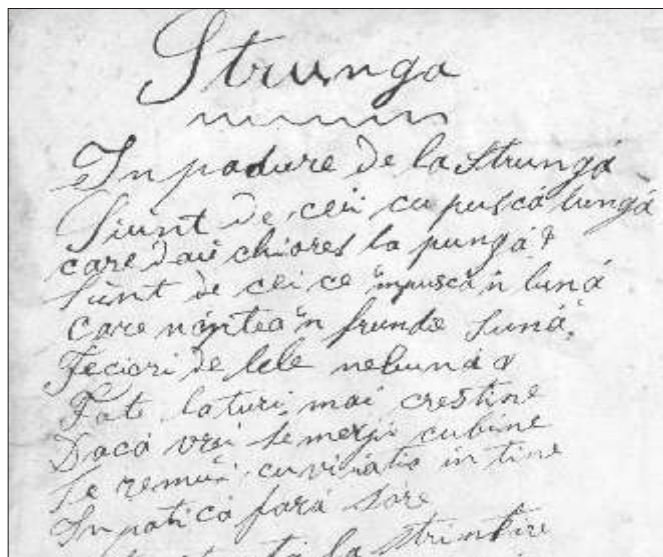 Strunga
In padure de la Strungá
Siunt de cei cu puscá lungá
care dau chiores la pungá
Siunt de cei ce 'mpuscá'n luná
Care nóptea'n frunde suná,
Feciori de lele nebuná
Fate laturi mai crestine
Dacá vrai se mergi cubine
Se remái cu viatia in tine
In poticá fará sóre
la strimtóre